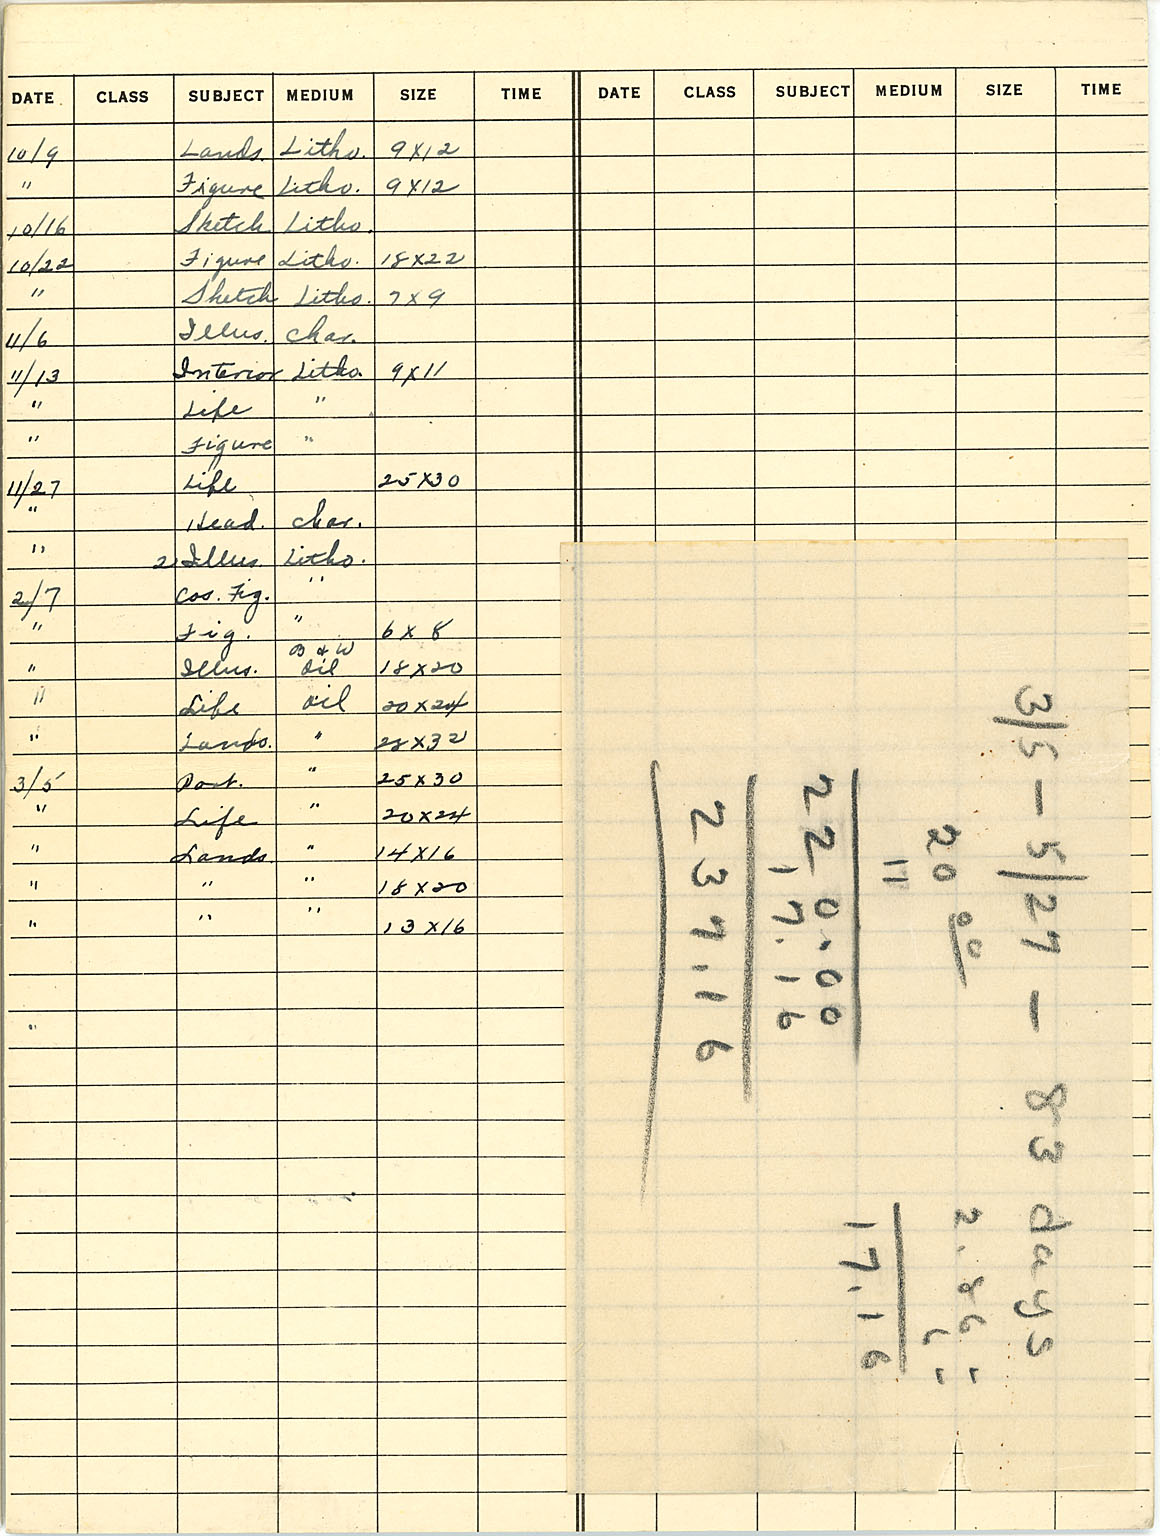 DATE CLASS SUBJECT MEDIUM SIZE TIME DATE CLASS SUBJECT MEDIUM SIZE TIME
10/9 Lands. Litho. 9X12
" Figure Litho. 9X12
10/16 Sketch Litho.
10/22 Figure Litho. 18X22
" Sketch Litho. 7X9
11/6 Illus. Char.
11/13 Interior Litho. 9X11
" Life "
" Figure "
11/27 Life 25X30
" Head. Char.
" 2 Illus. Litho.
2/7 Cos. Fig. "
" Fig. " 6X8
" Illus. B & W Oil 18X20
" Life Oil 20X24
" Lands. " 28X32
3/5 Port. " 25X30
" Life " 20X24
" Lands " 14X16
" " " 18X20
" " " 13X16
"
3/5 - 5/27 - 83 days
20 00 2.86
11 6
17.16
220.00
17.16
237.16